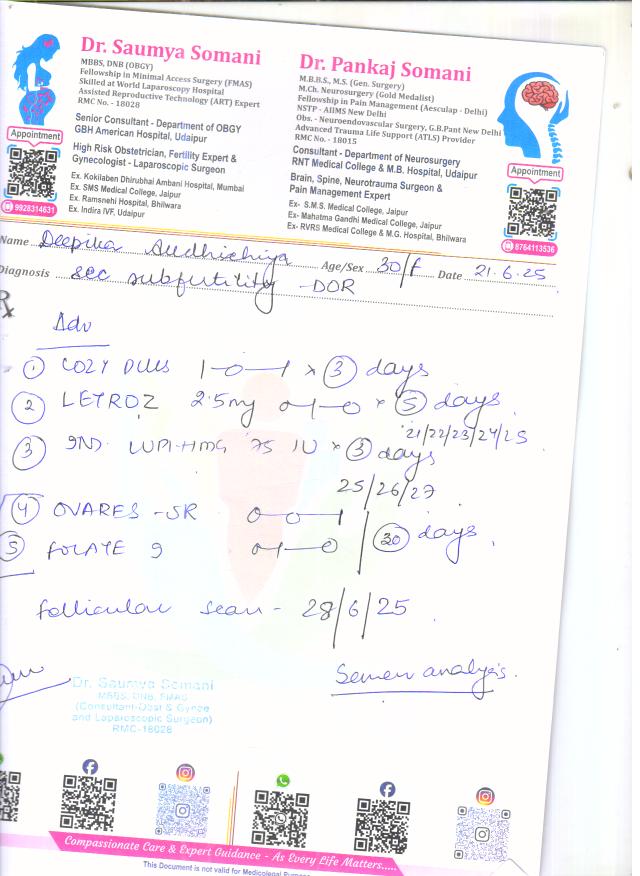 Dr. Saumya Somani
MBBS, DNB (OBGY)
Fellowship in Minimal Access Surgery (FMAS)
Skilled at World Laparoscopy Hospital
Assisted Reproductive Technology (ART) Expert
RMC No. - 18028
Senior Consultant - Department of OBGY
GBH American Hospital, Udaipur
High Risk Obstetrician, Fertility Expert &
Gynecologist - Laparoscopic Surgeon
Ex. Kokilaben Dhirubhai Ambani Hospital, Mumbai
Ex. SMS Medical College, Jaipur
Ex. Ramsnehi Hospital, Bhilwara
Ex. Indira IVF, Udaipur
Appointment
9928314631
Dr. Pankaj Somani
M.B.B.S., M.S. (Gen. Surgery)
M.Ch. Neurosurgery (Gold Medalist)
Fellowship in Pain Management (Aesculap - Delhi)
NSTP - AIIMS New Delhi
Obs. - Neuroendovascular Surgery, G.B.Pant New Delhi
Advanced Trauma Life Support (ATLS) Provider
RMC No. - 18015
Consultant - Department of Neurosurgery
RNT Medical College & M.B. Hospital, Udaipur
Brain, Spine, Neurotrauma Surgeon &
Pain Management Expert
Ex- S.M.S. Medical College, Jaipur
Ex- Mahatma Gandhi Medical College, Jaipur
Ex- RVRS Medical College & M.G. Hospital, Bhilwara
Appointment
8764113536
Name Deepika Age/Sex 30/f Date 21.6.25
Diagnosis sec subfertility -DOR
Rx
Adv
① COZY PLUS 1-0-1 × ③ days
② LETROZ 2.5mg 0-1-0 × ⑤ days
21/22/23/24/25
③ INJ. LUPI-HMG 75 IU × ③ days
25/26/27
④ OVARES -SR 0-0-1
⑤ FOLATE 9 0-1-0 (30) days
follicular scan - 28/6/25
Semen analysis.
Dr. Saumya Somani
MBBS, DNB, FMAS
(Consultant-Obst & Gynae
and Laparoscopic Surgeon)
RMC-18028
Compassionate Care & Expert Guidance - As Every Life Matters.....
This Document is not valid for Medicolegal